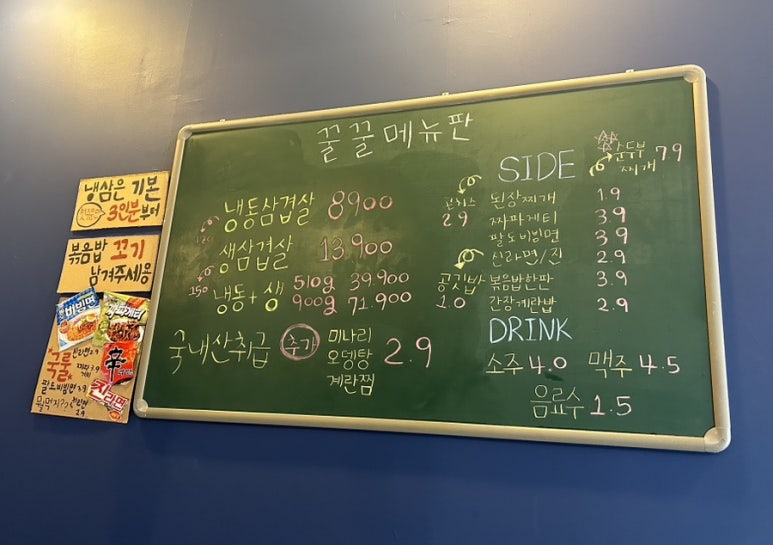 꿀꿀메뉴판
냉동삼겹살 8900
120
생삼겹살 13.900
150
냉동+생 510g 39.900
900g 71.900
국내산취급
추가 미나리
오뎅탕 2.9
계란찜
SIDE
순두부
찌개 7.9
콘치즈
2.9
된장찌개 1.9
짜파게티 3.9
팔도비빔면 3.9
신라면/진 2.9
공깃밥
1.0
볶음밥한판 3.9
간장계란밥 2.9
DRINK
소주 4.0 맥주 4.5
음료수 1.5
냉삼은 기본
3인분부터
볶음밥 꼬기
남겨주세용
비빔면
짜파게티
국룰
신라면 2.9
辛
짜파게티 3.9
팔도비빔면 3.9
진라면
뭘먹지??
진라면
2.9